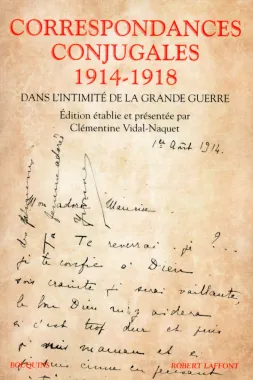 CORRESPONDANCES
CONJUGALES
1914-1918
DANS L'INTIMITÉ DE LA GRANDE GUERRE
Édition établie et présentée par
Clémentine Vidal-Naquet
1er Août 1914.
Mon adoré Maurice
Te reverrai-je ?
je te confie à Dieu
sois sans crainte je serai vaillante,
le bon Dieu m'y aidera
si c'est trop dur et puis
j'ai mis maman et
en pensant
Ta femme adorée
Yvonne
BOUQUINS
ROBERT LAFFONT